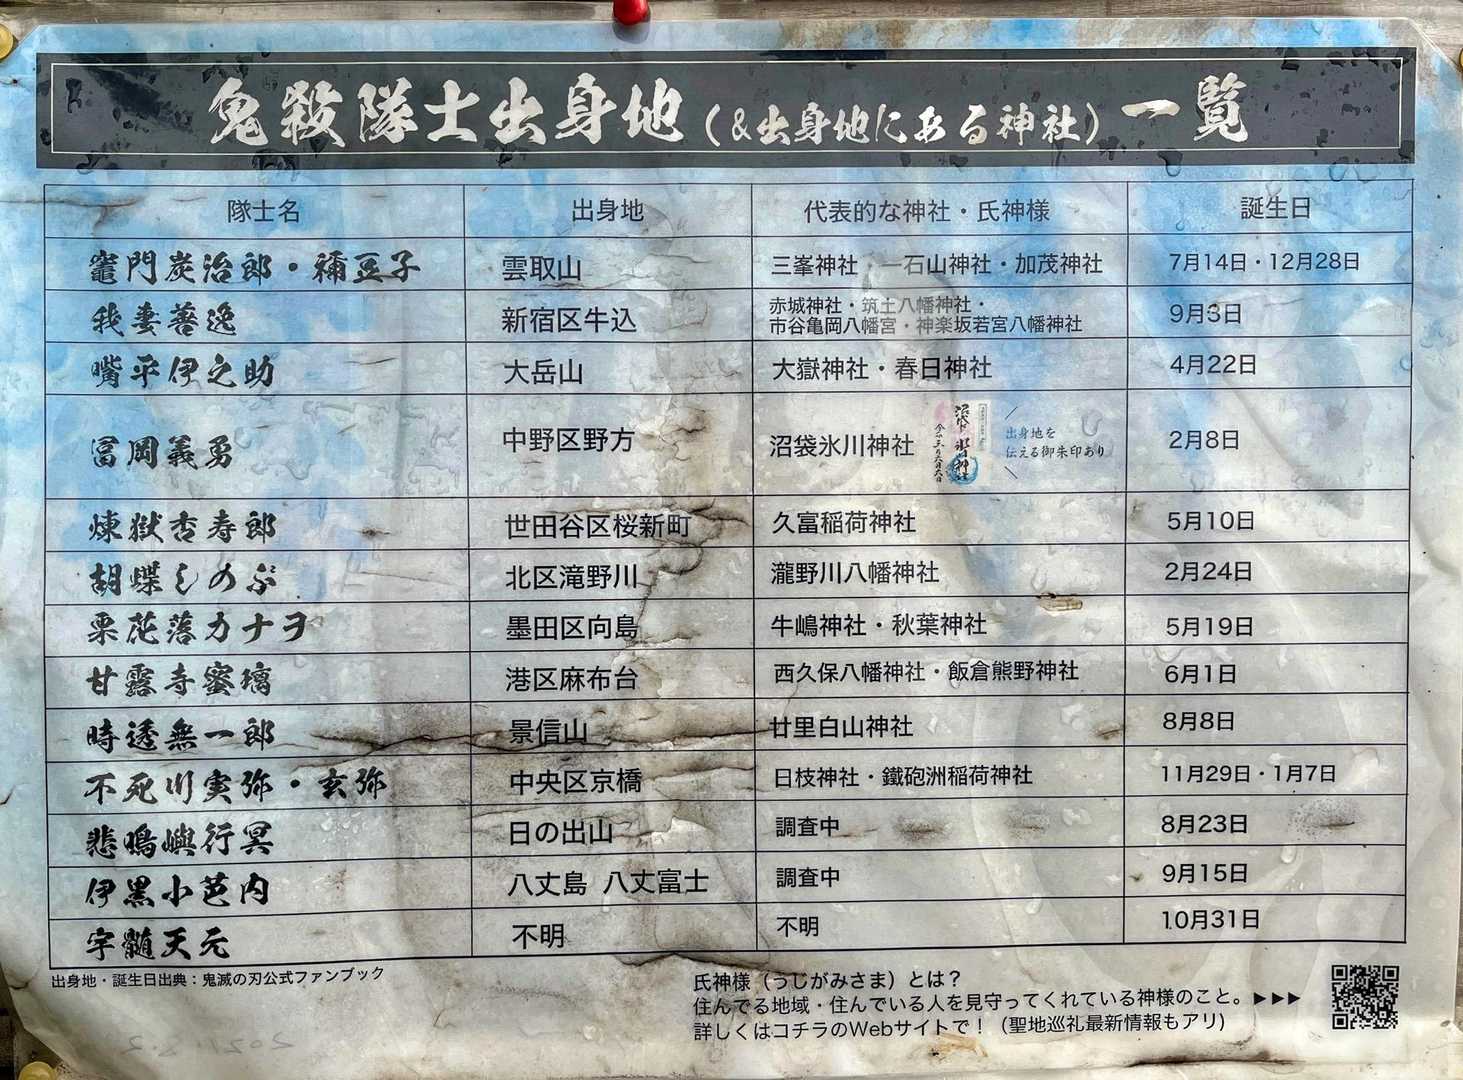 鬼殺隊士出身地(&出身地にある神社)一覧
隊士名 出身地 代表的な神社・氏神様 誕生日
竈門炭治郎・禰豆子 雲取山 三峯神社・一石山神社・加茂神社 7月14日・12月28日
我妻善逸 新宿区牛込 赤城神社・筑土八幡神社・
市谷亀岡八幡宮・神楽坂若宮八幡神社 9月3日
嘴平伊之助 大岳山 大嶽神社・春日神社 4月22日
冨岡義勇 中野区野方 沼袋氷川神社 出身地を
伝える御朱印あり 2月8日
煉獄杏寿郎 世田谷区桜新町 久富稲荷神社 5月10日
胡蝶しのぶ 北区滝野川 瀧野川八幡神社 2月24日
栗花落カナヲ 墨田区向島 牛嶋神社・秋葉神社 5月19日
甘露寺蜜璃 港区麻布台 西久保八幡神社・飯倉熊野神社 6月1日
時透無一郎 景信山 廿里白山神社 8月8日
不死川実弥・玄弥 中央区京橋 日枝神社・鐵砲洲稲荷神社 11月29日・1月7日
悲鳴嶼行冥 日の出山 調査中 8月23日
伊黒小芭内 八丈島 八丈富士 調査中 9月15日
宇髄天元 不明 不明 10月31日
出身地・誕生日出典:鬼滅の刃公式ファンブック
氏神様(うじがみさま)とは?
住んでる地域・住んでいる人を見守ってくれている神様のこと。▶▶▶
詳しくはコチラのWebサイトで!(聖地巡礼最新情報もアリ)